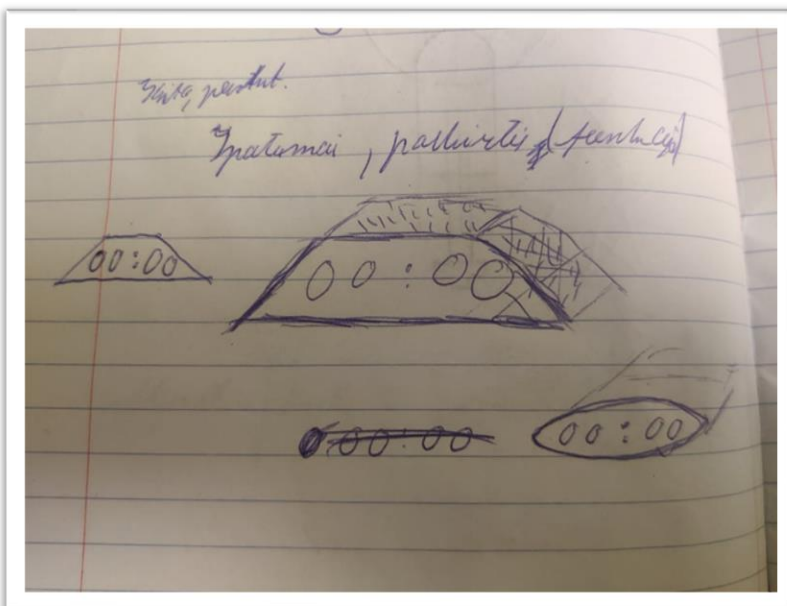 Ypatumai, paskirtis (funkcija)
00:00
00:00
00:00
00:00